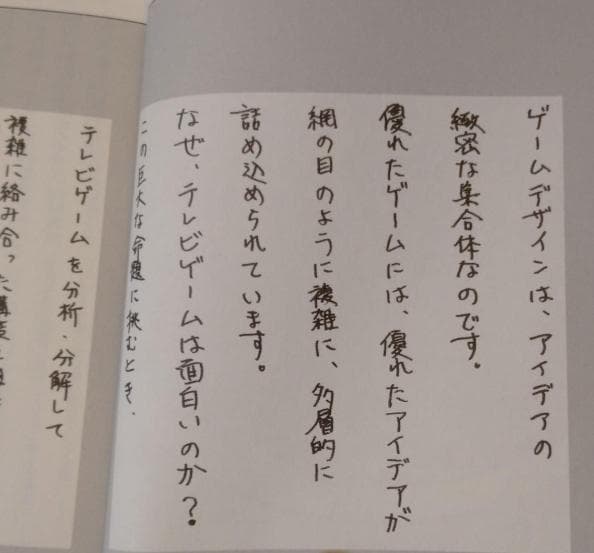 ゲームデザインは、アイデアの
緻密な集合体なのです。
優れたゲームには、優れたアイデアが
網の目のように複雑に、多層的に
詰め込められています。
なぜ、テレビゲームは面白いのか？
この巨大な命題に挑むとき、
テレビゲームを分析・分解して
複雑に絡み合った構造